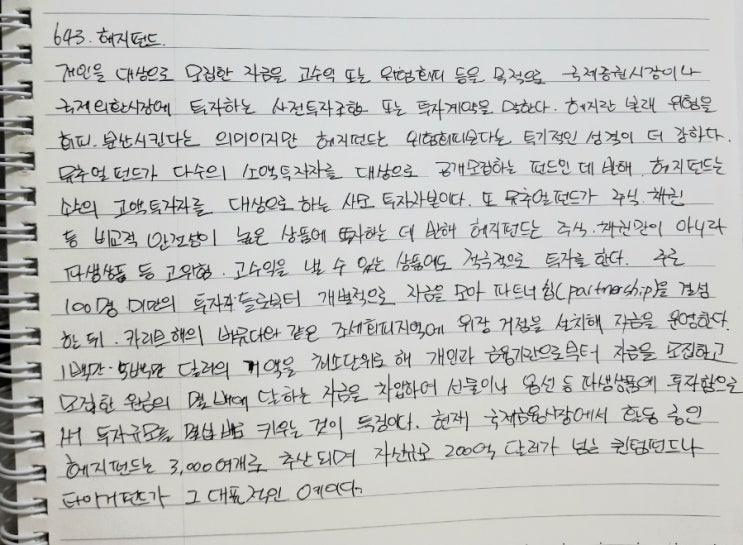 643. 헤지펀드.
개인을 대상으로 모집한 자금을 고수익 또는 위험회피 등을 목적으로 국제증권시장이나
국제외환시장에 투자하는 사전투자조합 또는 투자계약을 말한다. 헤지란 본래 위험을
회피. 분산시킨다는 의미이지만 헤지펀드는 위험회피보다는 투기적인 성격이 더 강하다.
뮤추얼펀드가 다수의 소액투자자를 대상으로 공개모집하는 펀드인 데 반해, 헤지펀드는
소수의 고액투자자를 대상으로 하는 사모 투자자본이다. 또 뮤추얼펀드가 주식. 채권
등 비교적 안전성이 높은 상품에 투자하는 데 반해 헤지펀드는 주식. 채권만이 아니라
파생상품 등 고위험. 고수익을 낼 수 있는 상품에도 적극적으로 투자를 한다. 주로
100명 미만의 투자자들로부터 개별적으로 자금을 모아 파트너쉽(partnership)을 결성
한 뒤. 카리브해의 버뮤다와 같은 조세회피지역에 위장 거점을 설치해 자금을 운영한다.
1백만·5백만 달러의 거액을 최소단위로 해 개인과 금융기관으로부터 자금을 모집하고
모집한 원금의 몇 배에 달하는 자금을 차입하여 선물이나 옵션 등 파생상품에 투자함으로
써 투자규모를 몇십 배로 키우는 것이 특징이다. 현재 국제금융시장에서 활동 중인
헤지펀드는 3,000여개로 추산되며 자산규모 200억 달러가 넘는 퀀텀펀드나
타이거펀드가 그 대표적인 예이다.